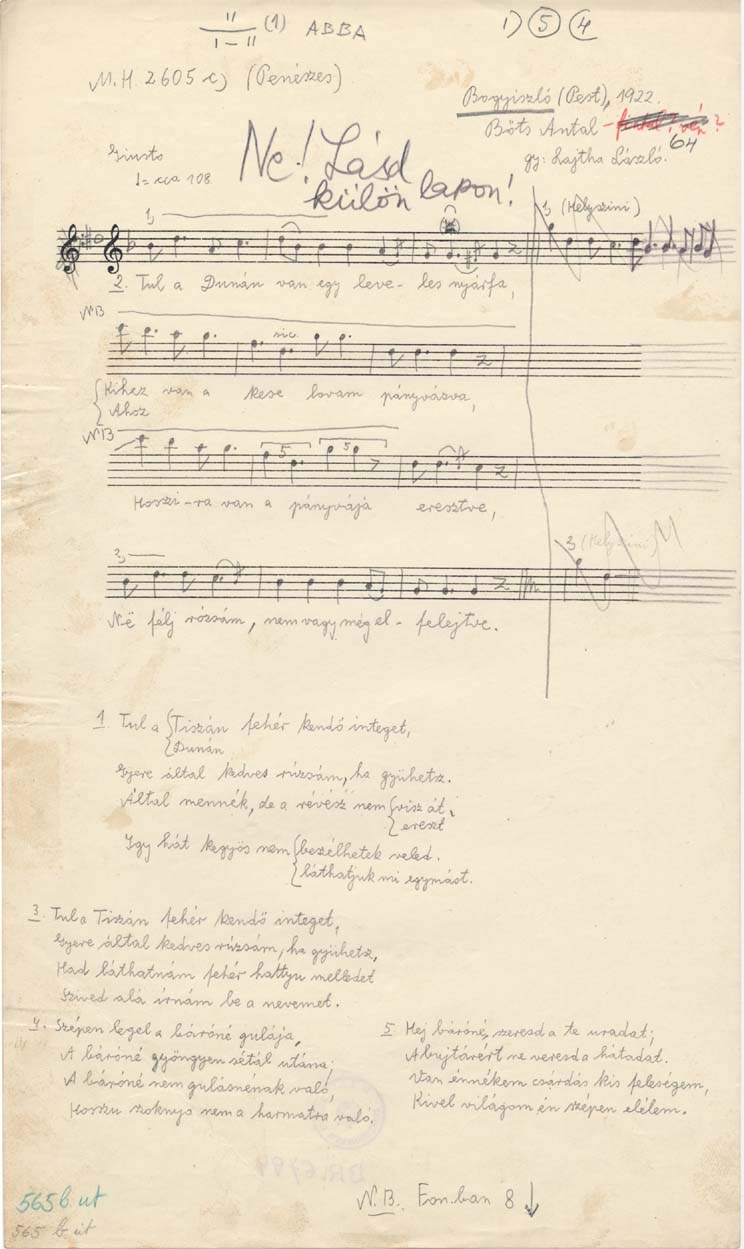 II (1) ABBA
I–II
1) 5 4
M.H. 2605 c) (Penészes)
Bogyiszló (Pest), 1922.
Böts Antal – vén?
64
gy: Lajtha László.
Giusto
108.
Ne! Lásd
külön lapon!
1, 1, (Helyszini)
2. Tul a Dunán van egy leve- les nyárfa,
NB
sic.
Kihez van a kese lovam pányvázva,
Ahoz
NB
5 5
Hoszi-ra van a pányvájá eresztve,
3, 3, (Helyszini)
Në félj rózsám, nem vagy még el- felejtve.
1. Tul a Tiszán fehér kendő integet,
Dunán
Gyere által kedves rúzsám, ha gyühetsz.
Által mennék, de a révész nem visz át,
ereszt
Igy hát kegyös nem beszélhetek veled.
láthatjuk mi egymást.
3. Tul a Tiszán fehér kendő integet,
Gyere által kedves rúzsám, ha gyühetsz,
Had láthatnám fehér hattyu melledet
Szived alá irnám be a nevemet.
4. Szépen legel a báróné gulája,
A báróné gyöngyen sétál utána;
A báróné nem gulásnénak való,
Hosszu szoknya nem a harmatra való.
5 Hej báróné, szeresd a te uradat;
A bujtárért ne veresd a hátadat.
Van énnékem csárdás kis feleségem,
Kivel világom én szépen elélem.
565 b ut
565 b út
N.B. Fon.ban 8 ↓